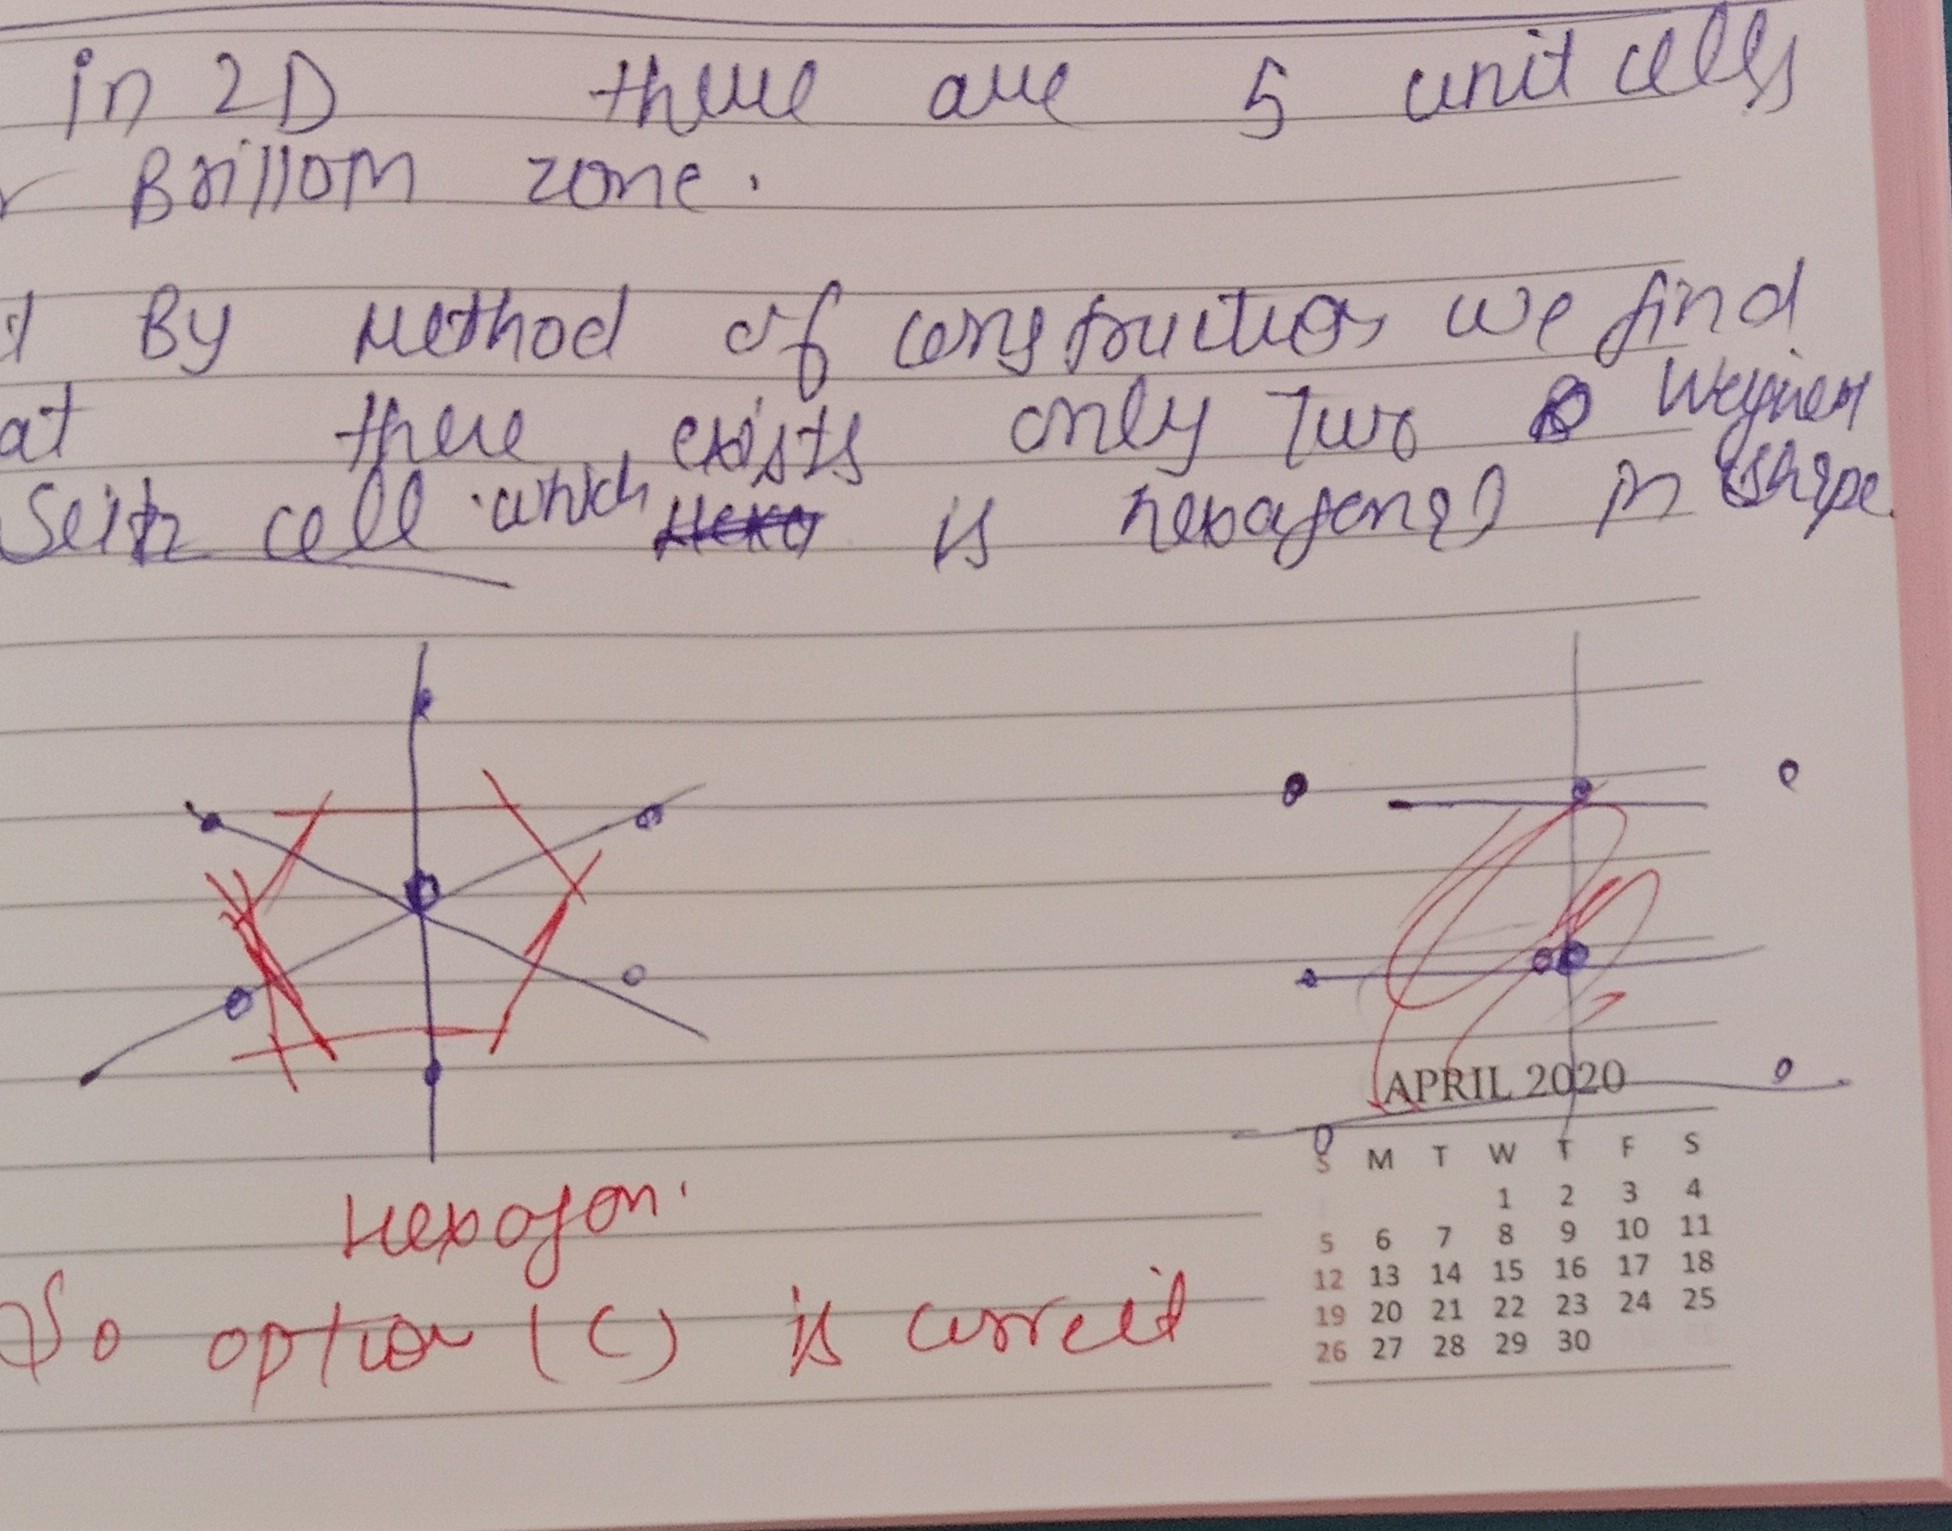 in 2D there are 5 unit cells
r Brillom zone.
By Method of constructuion we find
at there exists only Two Weigner
Seitz cell which is hexagonal in shape.
Hexagon.
So option (C) is correct
APRIL 2020
S M T W T F S
1 2 3 4
5 6 7 8 9 10 11
12 13 14 15 16 17 18
19 20 21 22 23 24 25
26 27 28 29 30